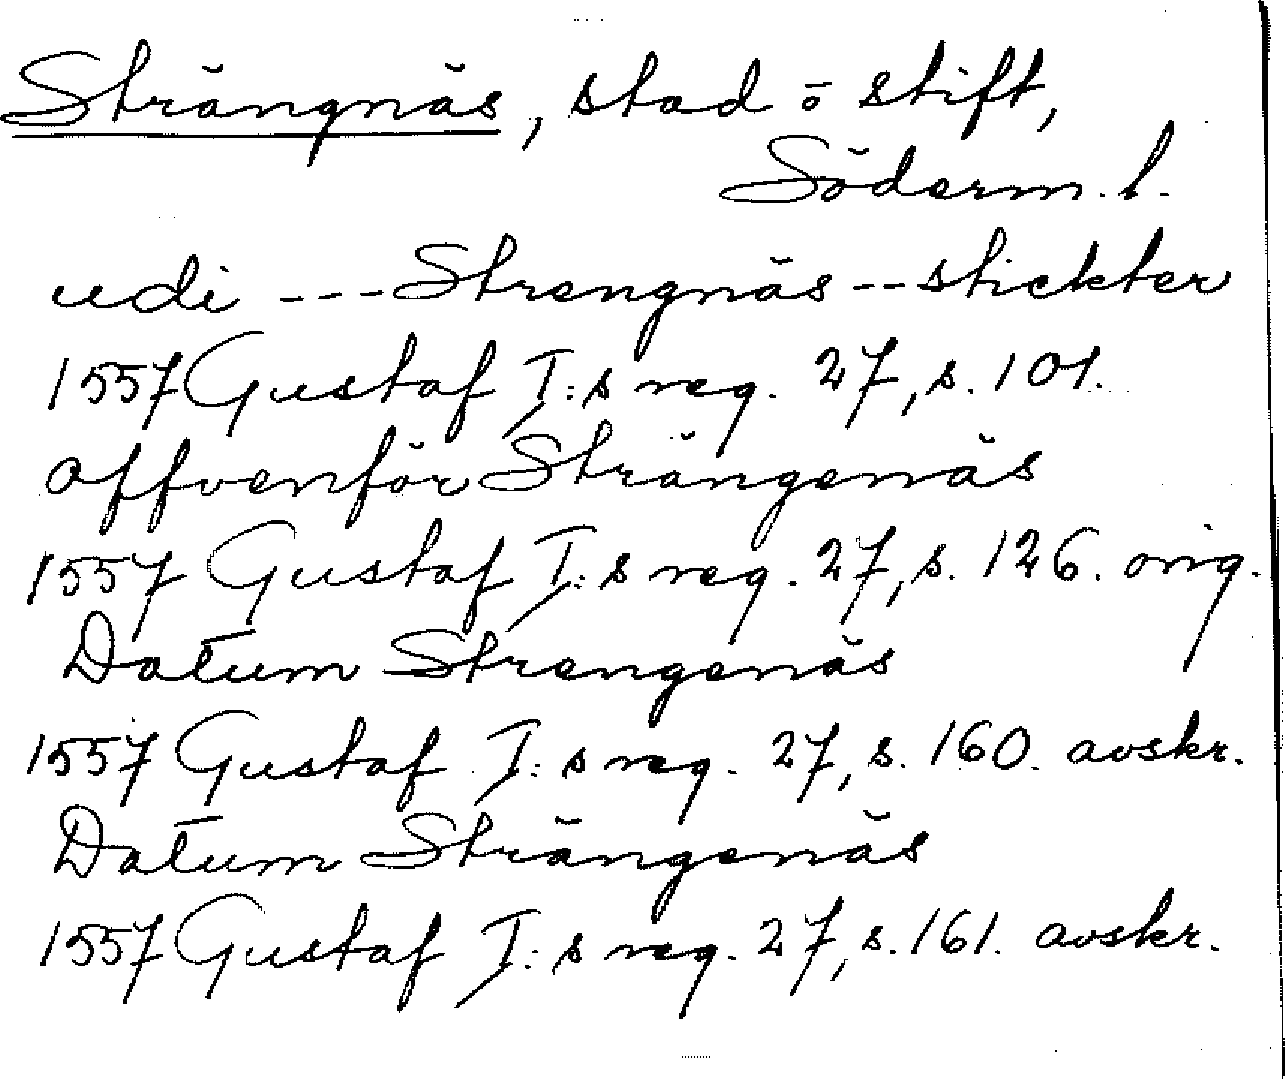 Strängnäs, stad o stift,
Söderm. l.
udi --- Strengnäs -- stickter
1557 Gustaf I:s reg. 27, s. 101.
offvenför Strängenäs
1557 Gustaf I:s reg. 27, s. 126. orig.
Datum Strengenäs
1557 Gustaf I:s reg. 27, s. 160. avskr.
Datum Strängenäs
1557 Gustaf I:s reg. 27, s. 161. avskr.